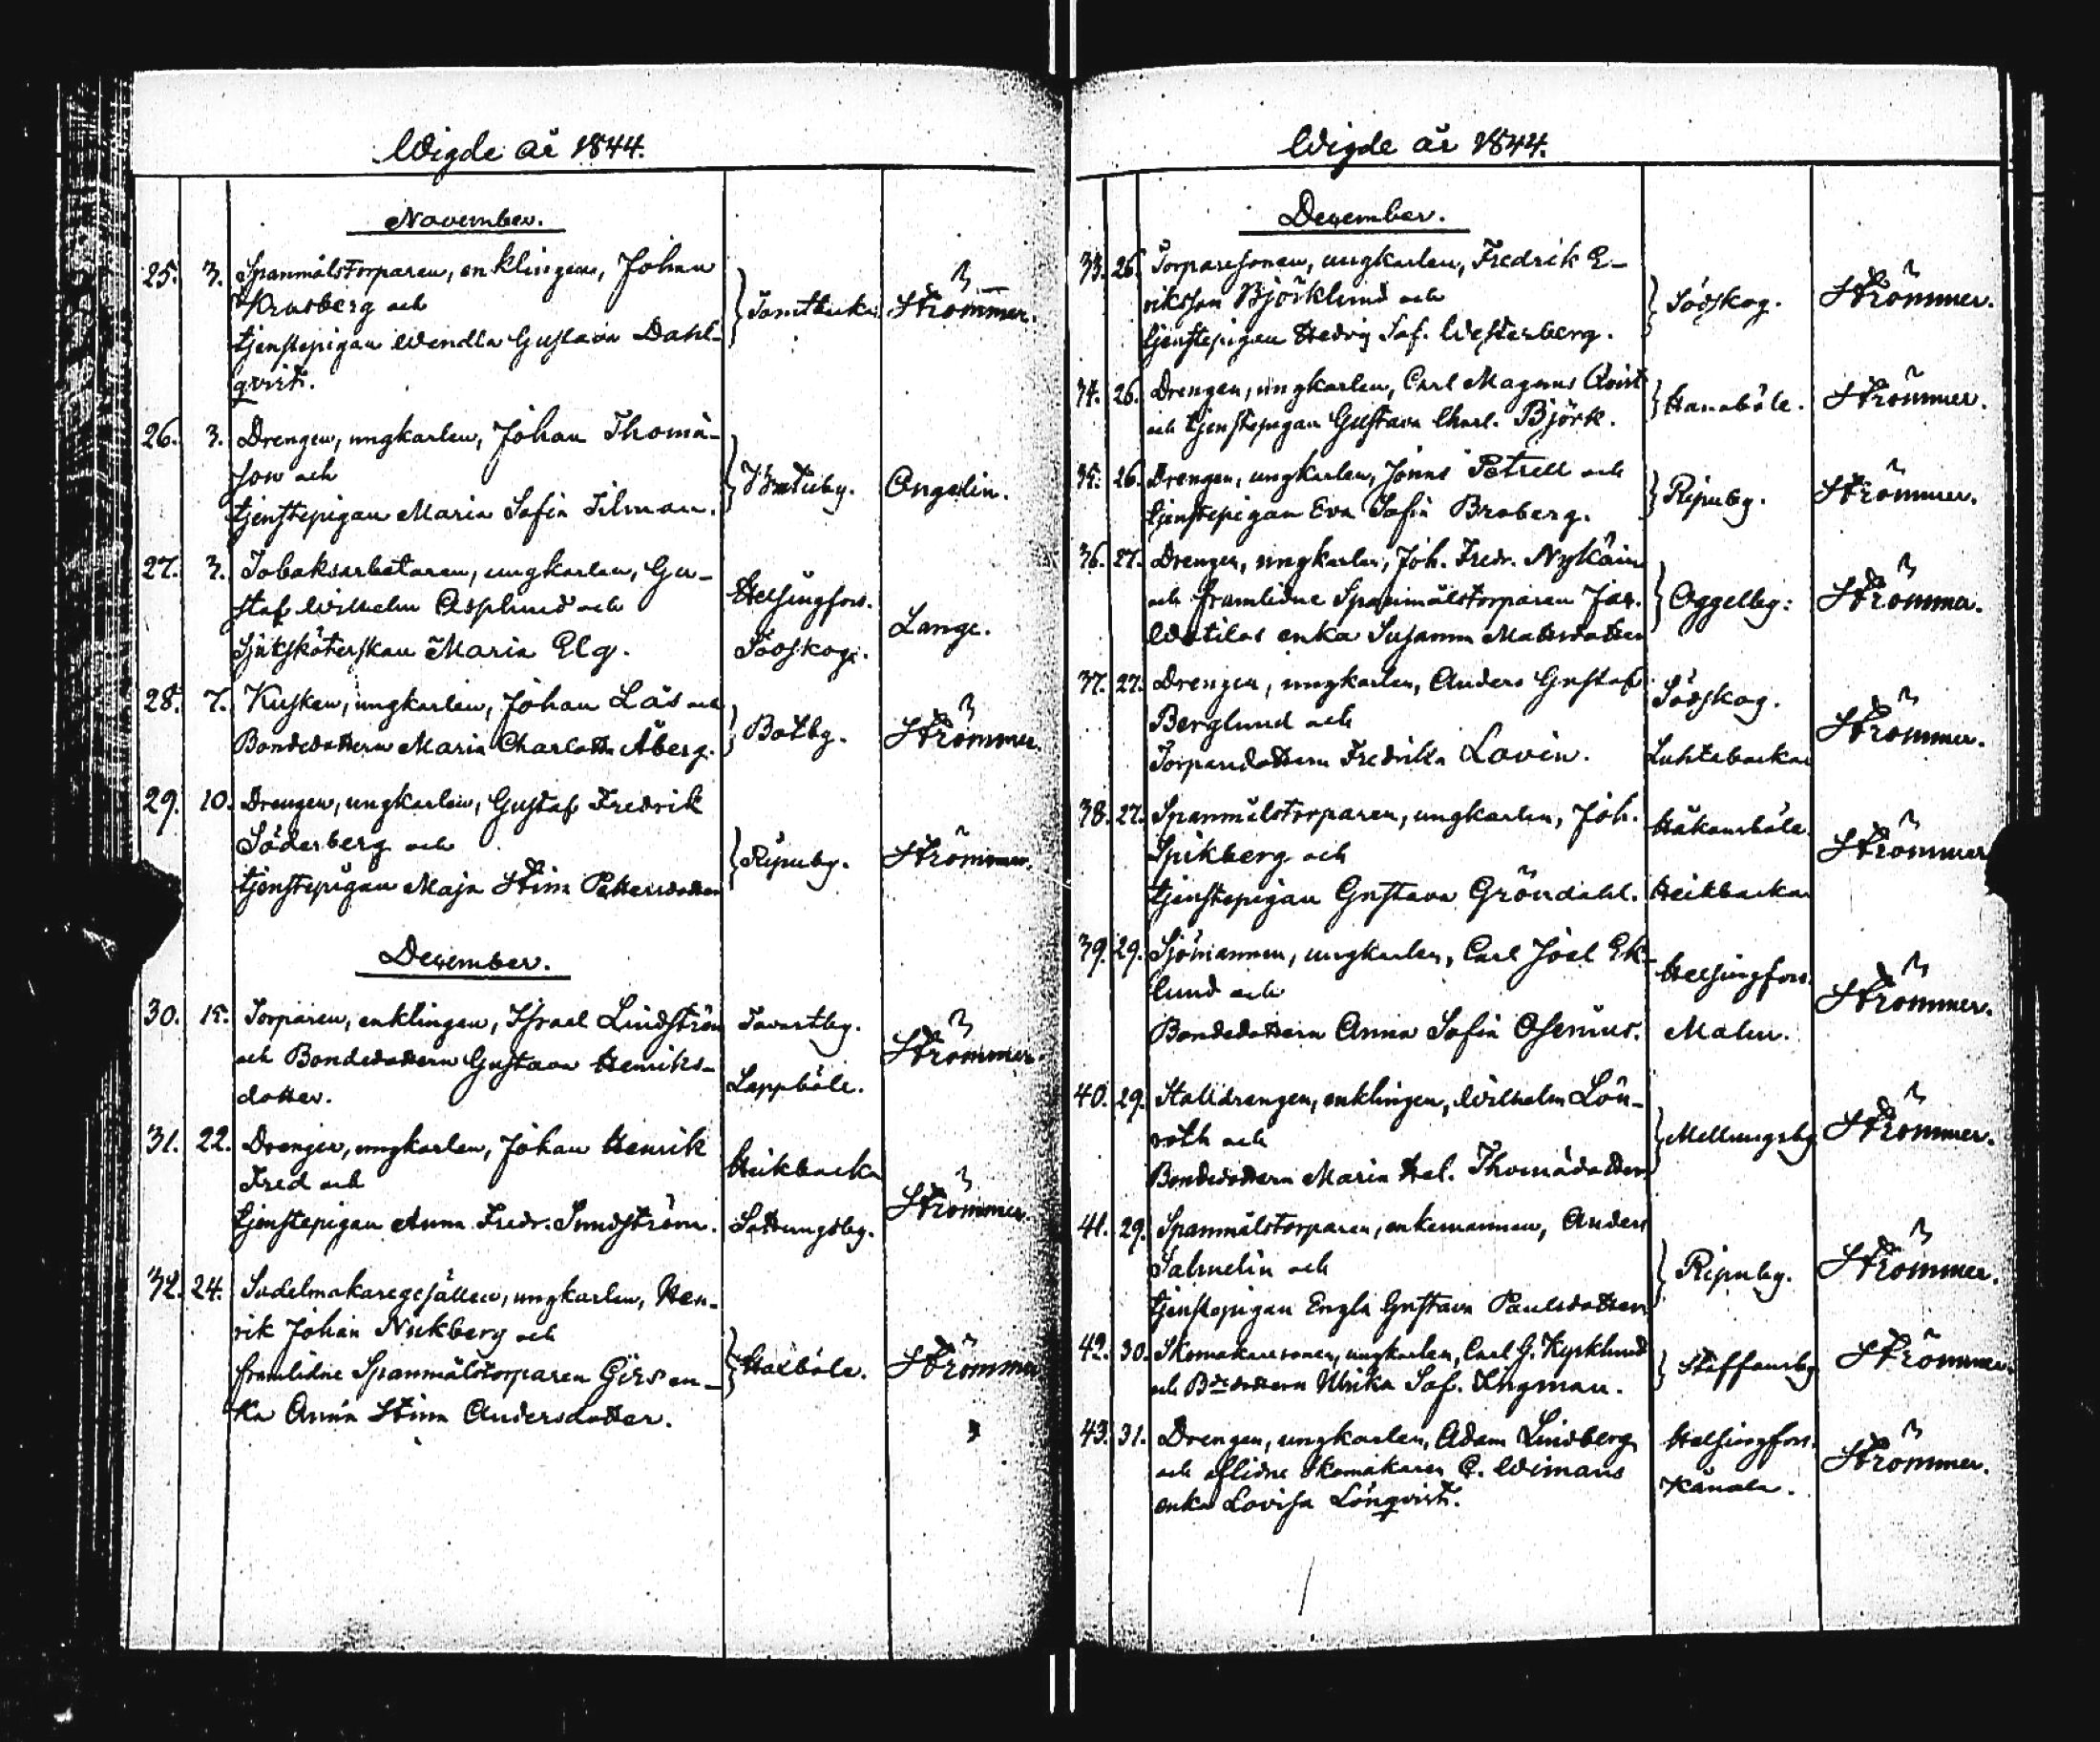 Wigde år 1844.
November.
25. 3. Spanmålstorparen, enklingen, Johan
Krusberg och
tjenstepigan Wendla Gustava Dahl-
qvist.
Tomtbacka. Strömmer.
26. 3. Drengen, ungkarlen, Johan Thomä-
son och
tjenstepigan Maria Sofia Silman.
Ångelin.
27. 3. Tobaksarbetaren, ungkarlen, Gu-
staf Wilhelm Asplund och
Sjuksköterskan Maria Elg.
Helsingfors.
Sodskog.
Lange.
28. 7. Kusken, ungkarlen, Johan Lås och
Bondedottern Maria Charlotta Åberg.
Botby. Strömmer.
29. 10. Drengen, ungkarlen, Gustaf Fredrik
Söderberg och
tjenstepigan Maja Stina Pettersdotter
Ripuby. Strömmer.
December.
30. 15. Torparen, enklingen, Israel Lindström
och Bondedottern Gustava Henriks-
dotter.
Tavastby.
Lappböle.
Strömmer.
31. 22. Drengen, ungkarlen, Johan Henrik
Fred och
tjenstepigan Anna Fredr. Sundström.
Heikbacka
Sottungsby.
Strömmer.
32. 24. Sadelmakaregesällen, ungkarlen, Hen-
rik Johan Nukberg och
framlidne Spanmålstorparen Girs en-
ka Anna Stina Andersdotter.
Haxböle. Strömmer
Wigde år 1844.
December.
33. 26. Torparesonen, ungkarlen, Fredrik E-
riksson Björklund och
tjenstepigan Hedvig Sof. Westerberg.
Sodskog. Strömmer.
34. 26. Drengen, ungkarlen, Carl Magnus Qvist
och tjenstepigan Gustava Charl. Björk.
Hanaböle. Strömmer.
35. 26. Drengen, ungkarlen, Jonas Petrell och
tjenstepigan Eva Sofia Broberg.
Ripuby. Strömmer.
36. 27. Drengen, ungkarlen, Joh. Fredr. Nykän
och framlidne Spanmålstorparen Jac.
Watilas enka Susanna Mattsdotter
Åggelby. Strömmer.
37. 27. Drengen, ungkarlen, Anders Gustaf
Berglund och
Torparedottern Fredrika Lovin.
Sodskog.
Luhtabacka
Strömmer.
38. 27. Spanmålstorparen, ungkarlen, Joh.
Spikberg och
tjenstepigan Gustava Gröndahl.
Håkansböle.
Heikbacka
Strömmer
39. 29. Sjömannen, ungkarlen, Carl Joel Ek-
lund och
Bondedottern Anna Sofia Osenius.
Helsingfors.
Malm.
Strömmer.
40. 29. Stalldrengen, enklingen, Wilhelm Lön-
roth och
Bondedottern Maria Hel. Thomädotter
Mellungsby Strömmer.
41. 29. Spanmålstorparen, enkemannen, Anders
Salmelin och
tjenstepigan Engla Gustava Paulsdotter
Ripuby. Strömmer.
42. 30. Skomakaresonen, ungkarlen, Carl G. Kyrklund
och Bdedottern Ulrika Sof. Ingman.
Staffansby Strömmer.
43. 31. Drengen, ungkarlen, Adam Lindberg
och aflidne Skomakaren E. Wimans
enka Lovisa Lönqvist.
Helsingfors.
Kånala.
Strömmer.